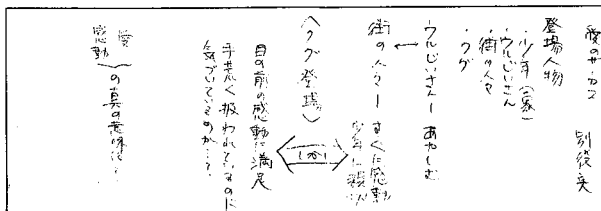 愛のサーカス 別役実
登場人物
・少年(象)
・ウルじいさん
・街の人々
・ウグ
ウルじいさんー あやしむ
街の人々ー すぐに感動
少年に親切
〈ウグ登場〉
しかし
目の前の感動に満足
手荒く扱われているのに
気づいているのか…?
愛
感動
の真の意味は?